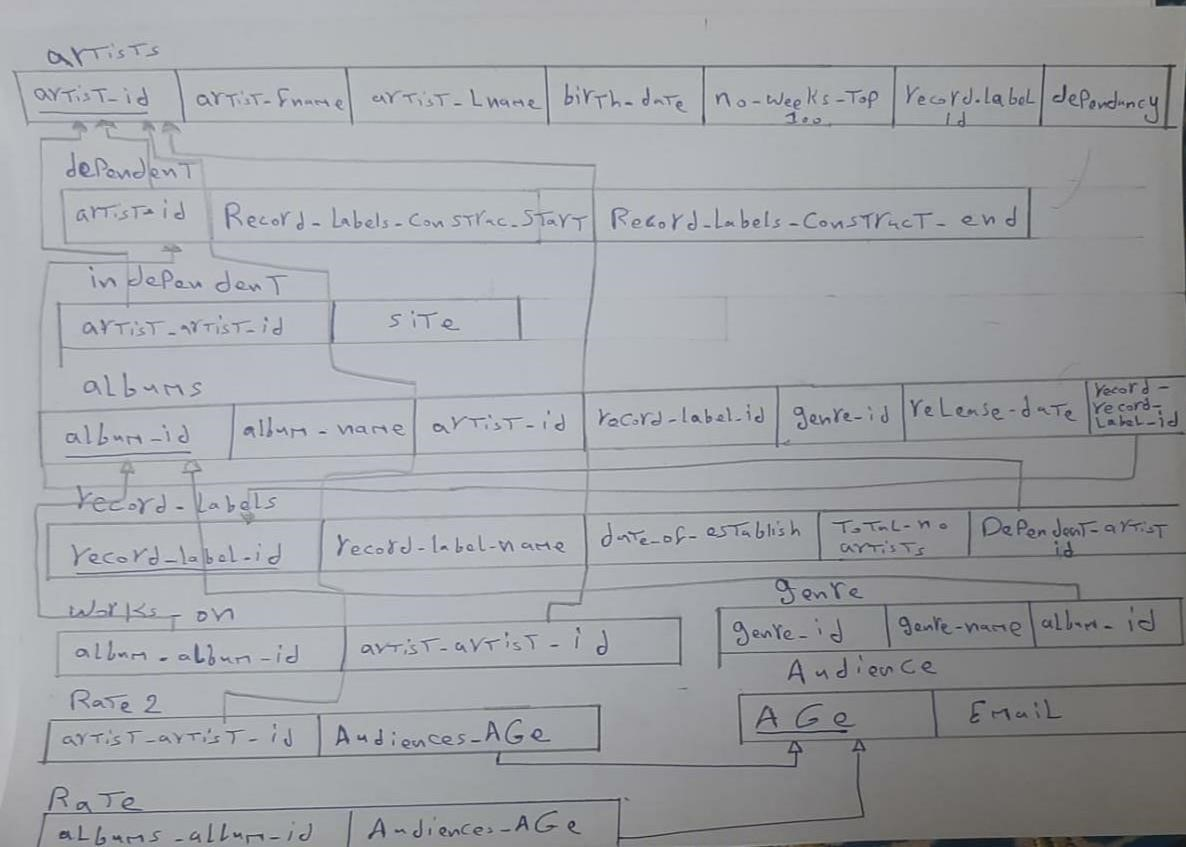 artists
artist-id artist-fname artist-Lname birth-date no-weeks-Top 100 record-label id dependancy
dependent
artist-id Record-Labels-Construc-Start Record-Labels-Construct-end
independent
artist-artist-id site
albums
album-id album-name artist-id record-label-id genre-id relense-date record-record-Label-id
record-labels
record-label-id record-label-name date-of-establish Total-no artists Dependent-artist id
works-on
album-album-id artist-artist-id
genre
genre-id genre-name album-id
Audience
AGe Email
Rate 2
artist-artist-id Audiences-AGe
Rate
albums-album-id Audiences-AGe